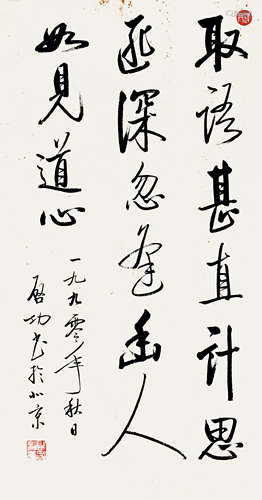 取語甚直計思
匪深忽逢幽人
如見道心
一九九零年秋日
啓功書於北京